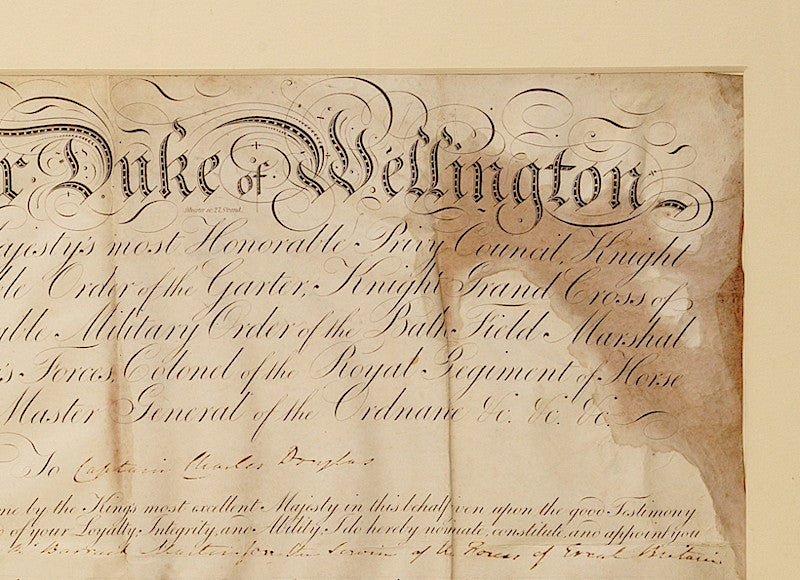 r Duke of Wellington
ajesty's most Honorable Privy Council, Knight
ble Order of the Garter, Knight Grand Cross of
able Military Order of the Bath Field Marshal
's Forces, Colonel of the Royal Regiment of Horse
Master General of the Ordnanc &c. &c. &c.
To Captain Charles Douglas
me by the Kings most excellent Majesty in this behalf ven upon the good Testimony
of your Loyalty, Integrity, and Ability, I do hereby nominate, constitute, and appoint you
Barrack Master for the Service of the Forces of Great Britain